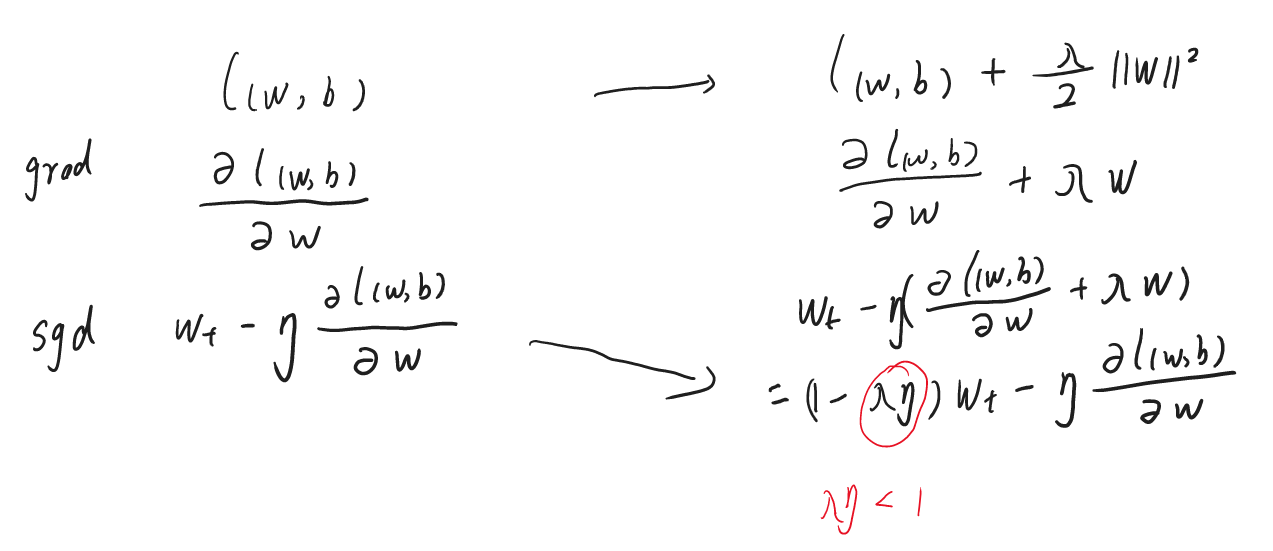 l(w, b) → l(w, b) + λ/2 ||w||²
grad ∂l(w,b)/∂w ∂l(w,b)/∂w + λ w
sgd w_t - η ∂l(w,b)/∂w → w_t - η(∂l(w,b)/∂w + λ w)
= (1 - λη) w_t - η ∂l(w,b)/∂w
λη < 1